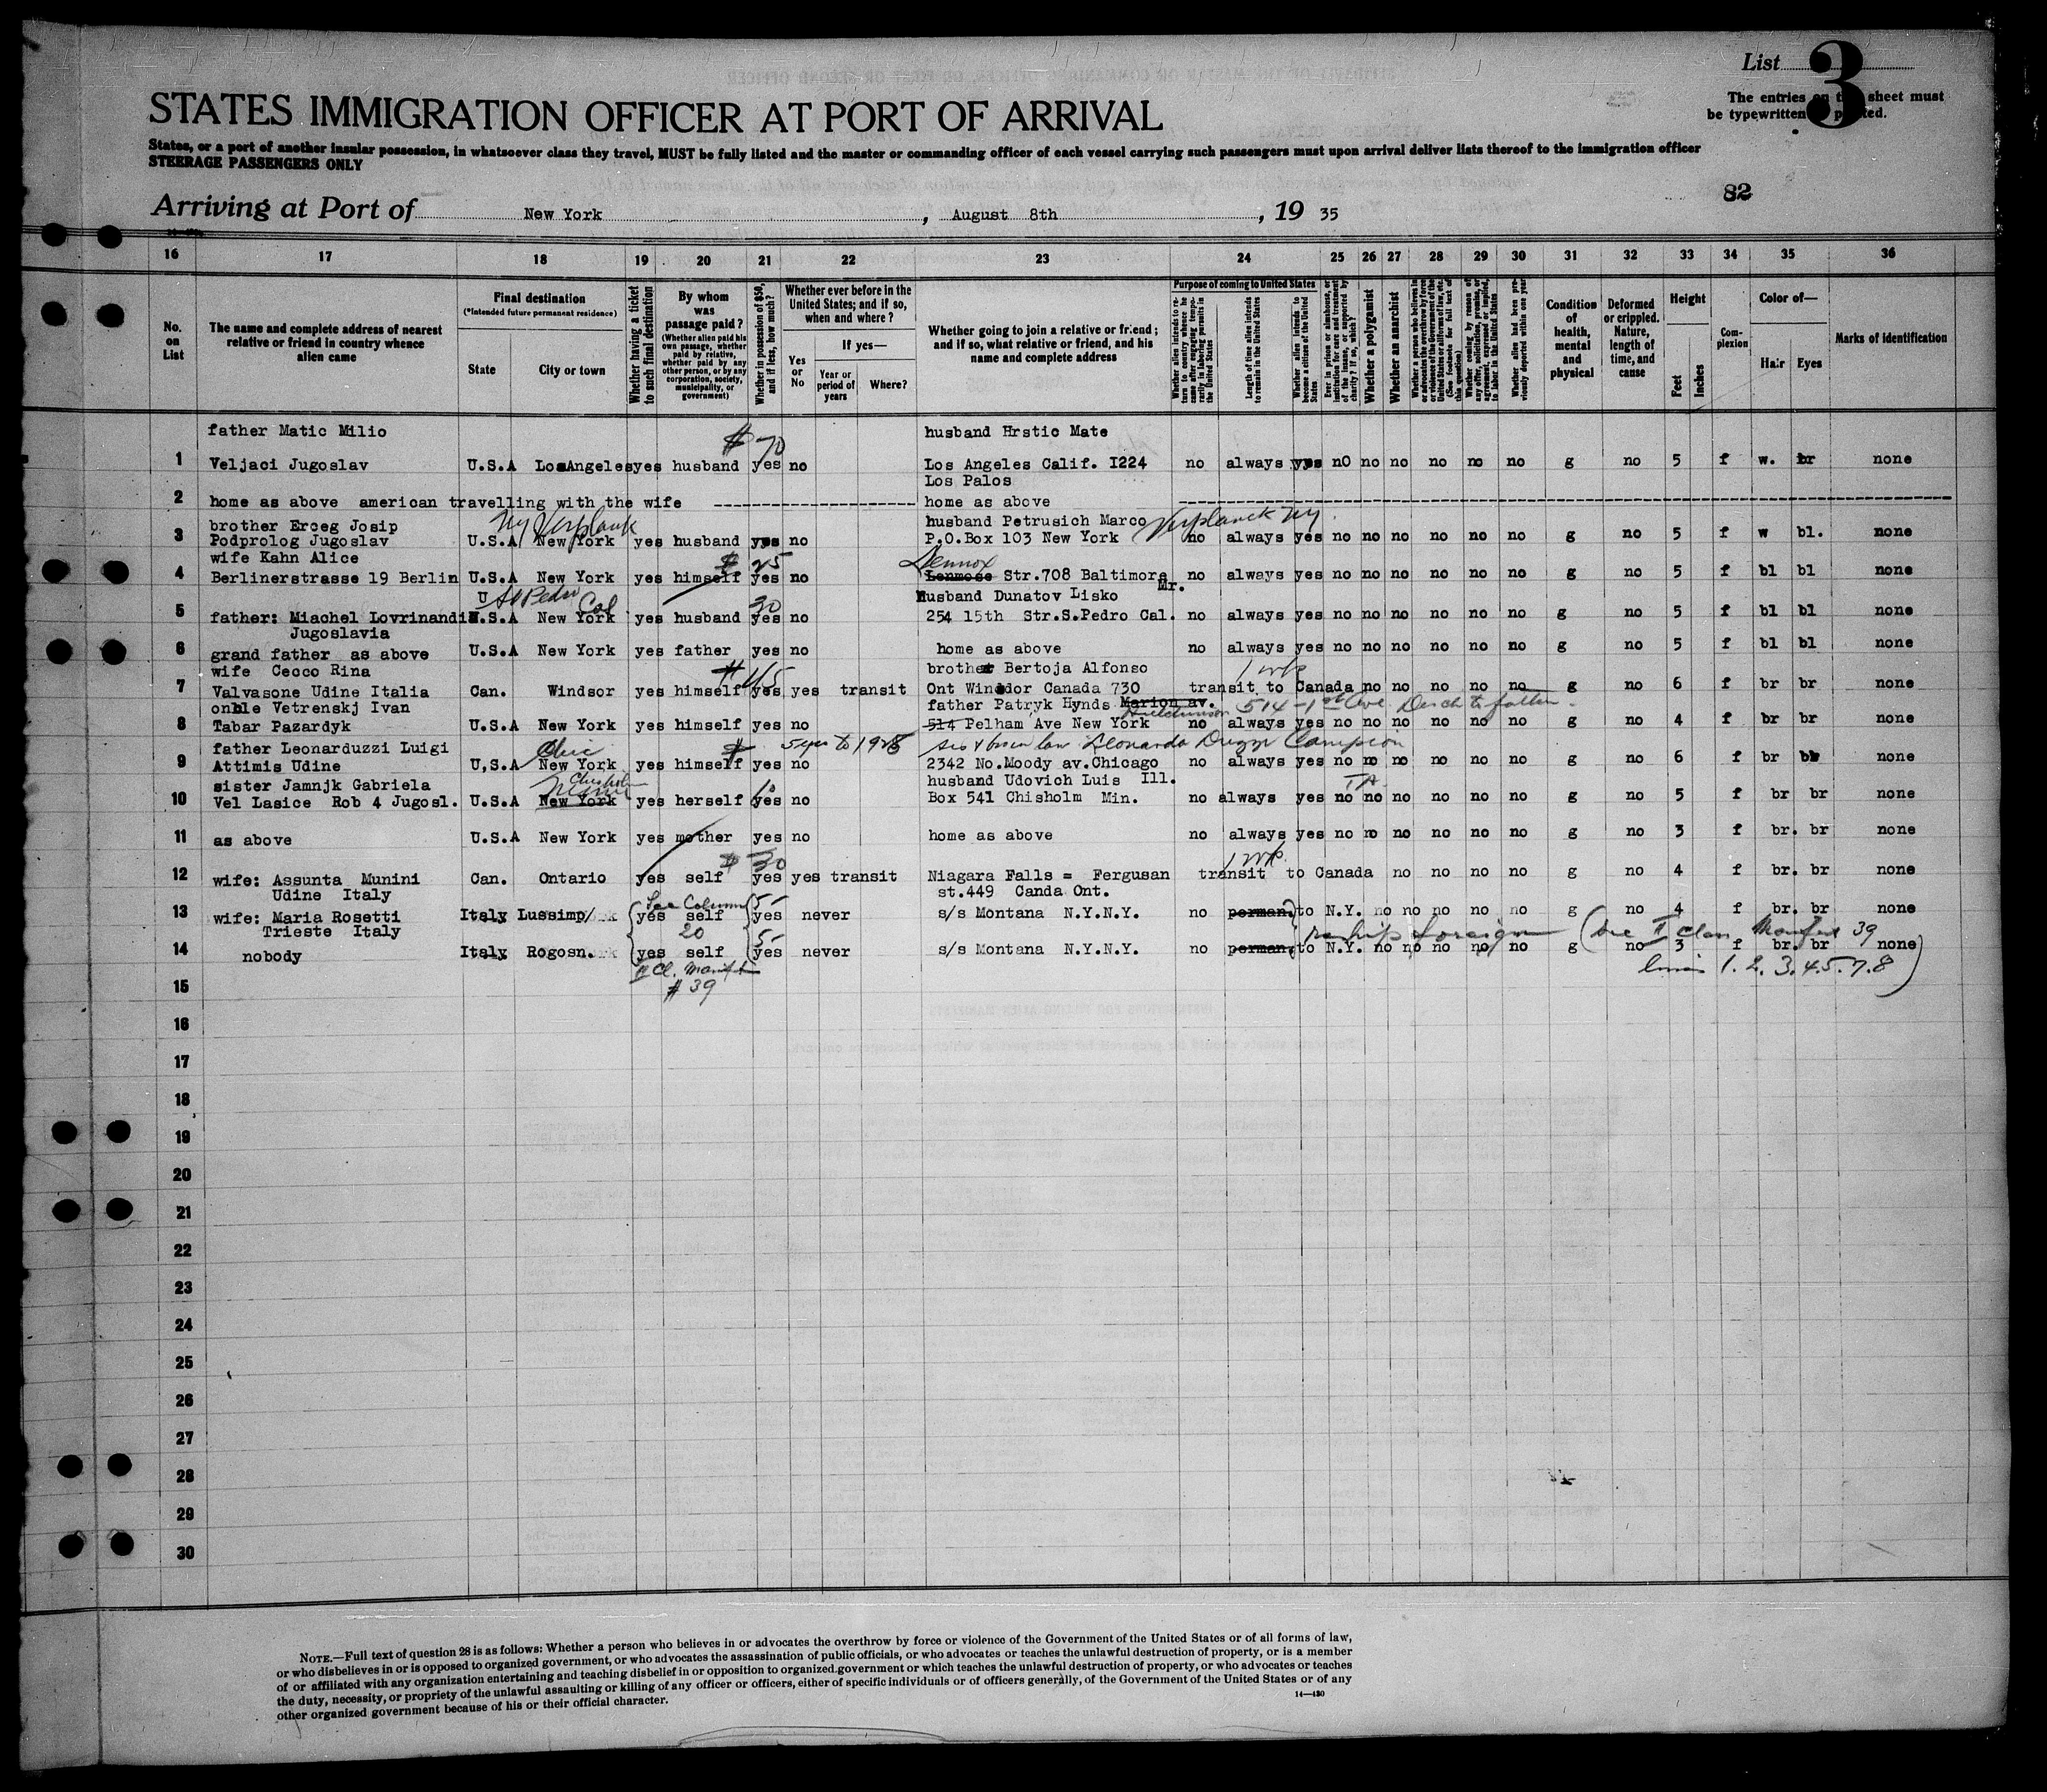 List 3
The entries on this sheet must
be typewritten or printed.
STATES IMMIGRATION OFFICER AT PORT OF ARRIVAL
States, or a port of another insular possession, in whatsoever class they travel, MUST be fully listed and the master or commanding officer of each vessel carrying such passengers must upon arrival deliver lists thereof to the immigration officer
STEERAGE PASSENGERS ONLY
82
Arriving at Port of New York, August 8th, 19 35
16 17 18 19 20 21 22 23 24 25 26 27 28 29 30 31 32 33 34 35 36
No. on List
The name and complete address of nearest relative or friend in country whence alien came
Final destination
(*Intended future permanent residence)
State
City or town
Whether having a ticket to such final destination
By whom was passage paid?
(Whether alien paid his own passage, whether paid by relative, whether paid by any other person, or by any corporation, society, municipality, or government)
Whether in possession of $50, and if less, how much?
Whether ever before in the United States; and if so, when and where?
Yes or No
If yes—
Year or period of years
Where?
Whether going to join a relative or friend; and if so, what relative or friend, and his name and complete address
Purpose of coming to United States
Whether alien intends to return to country whence he came after engaging temporarily in laboring pursuits in the United States
Length of time alien intends to remain in the United States
Whether alien intends to become a citizen of the United States
Ever in prison or almshouse, or institution for care and treatment of the insane, or supported by charity? If so, which?
Whether a polygamist
Whether an anarchist
Whether coming by reason of any offer, solicitation, promise, or agreement, expressed or implied, to labor in the United States
Whether alien had been previously deported within one year
Condition of health, mental and physical
Deformed or crippled. Nature, length of time, and cause
Height
Feet
Inches
Complexion
Color of—
Hair
Eyes
Marks of identification
father Matic Milio husband Hrstic Mate
$ 70
1 Veljaci Jugoslav U.S.A LosAngeles yes husband yes no Los Angeles Calif. I224 no always yes nO no no no no no g no 5 f w. br none
Los Palos
2 home as above american travelling with the wife home as above
brother Erceg Josip Ny Verplank husband Petrusich Marco Verplanck Ny
3 Podprolog Jugoslav U.S.A New York yes husband yes no P.O.Box 103 New York no always yes no no no no no no g no 5 f w bl. none
wife Kahn Alice $ 25 Lennox
4 Berlinerstrasse 19 Berlin U.S.A New York yes himself yes no Lenmose Str.708 Baltimore no always yes no no no no no no g no 5 f bl bl none
S Pedro Cal 30 Husband Dunatov Lisko Mr.
5 father: Miachel Lovrinandi U.S.A New York yes husband yes no 254 15th Str.S.Pedro Cal. no always yes no no no no no no g no 5 f bl bl none
Jugoslavia
6 grand father as above U.S.A New York yes father yes no home as above no always yes no no no no no no g no 5 f bl bl none
wife Cecco Rina $ 45 brother Bertoja Alfonso 1 wk
7 Valvasone Udine Italia Can. Windsor yes himself yes yes transit Ont Windor Canada 730 transit to Canada no no no no no g no 6 f br br none
onble Vetrenskj Ivan father Patryk Hynds Marion av. Hutchinson 514-1st Ave
8 Tabar Pazardyk U.S.A New York yes himself yes no 514 Pelham Ave New York no always yes no no no no no no g no 4 f br br none
father Leonarduzzi Luigi Chic $ 5 yrs to 1928
9 Attimis Udine U,S.A New York yes himself yes no 2342 No.Moody av.Chicago no always yes no no no no no no g no 6 f br br none
sister Jamnjk Gabriela Chisholm husband Udovich Luis Ill.
10 Vel Lasice Rob 4 Jugosl. U.S.A New York yes herself yes no Box 541 Chisholm Min. no always yes no no no no no no g no 5 f br br none
11 as above U.S.A New York yes mother yes no home as above no always yes no no no no no no g no 3 f br. br none
$ 30 1 wk
12 wife: Assunta Munini Can. Ontario yes self yes yes transit Niagara Falls = Fergusan transit to Canada no no no no no g no 4 f br. br none
Udine Italy st.449 Canda Ont.
See Column 20 5-
13 wife: Maria Rosetti Italy Lussimp/ yes self yes never s/s Montana N.Y.N.Y. no perman. to N.Y. no no no no no g no 4 f br. br none
Trieste Italy 5- reship foreign (see II class Manifest 39
14 nobody Italy Rogosn. yes self yes never s/s Montana N.Y.N.Y. no perman. to N.Y. no no no no no g no 3 f br. br none
II Cl. Manifest #39 lines 1.2.3.4.5.7.8)
15
16
17
18
19
20
21
22
23
24
25
26
27
28
29
30
NOTE.—Full text of question 28 is as follows: Whether a person who believes in or advocates the overthrow by force or violence of the Government of the United States or of all forms of law,
or who disbelieves in or is opposed to organized government, or who advocates the assassination of public officials, or who advocates or teaches the unlawful destruction of property, or is a member
of or affiliated with any organization entertaining and teaching disbelief in or opposition to organized government or which teaches the unlawful destruction of property, or who advocates or teaches
the duty, necessity, or propriety of the unlawful assaulting or killing of any officer or officers, either of specific individuals or of officers generally, of the Government of the United States or of any
other organized government because of his or their official character.
14—430